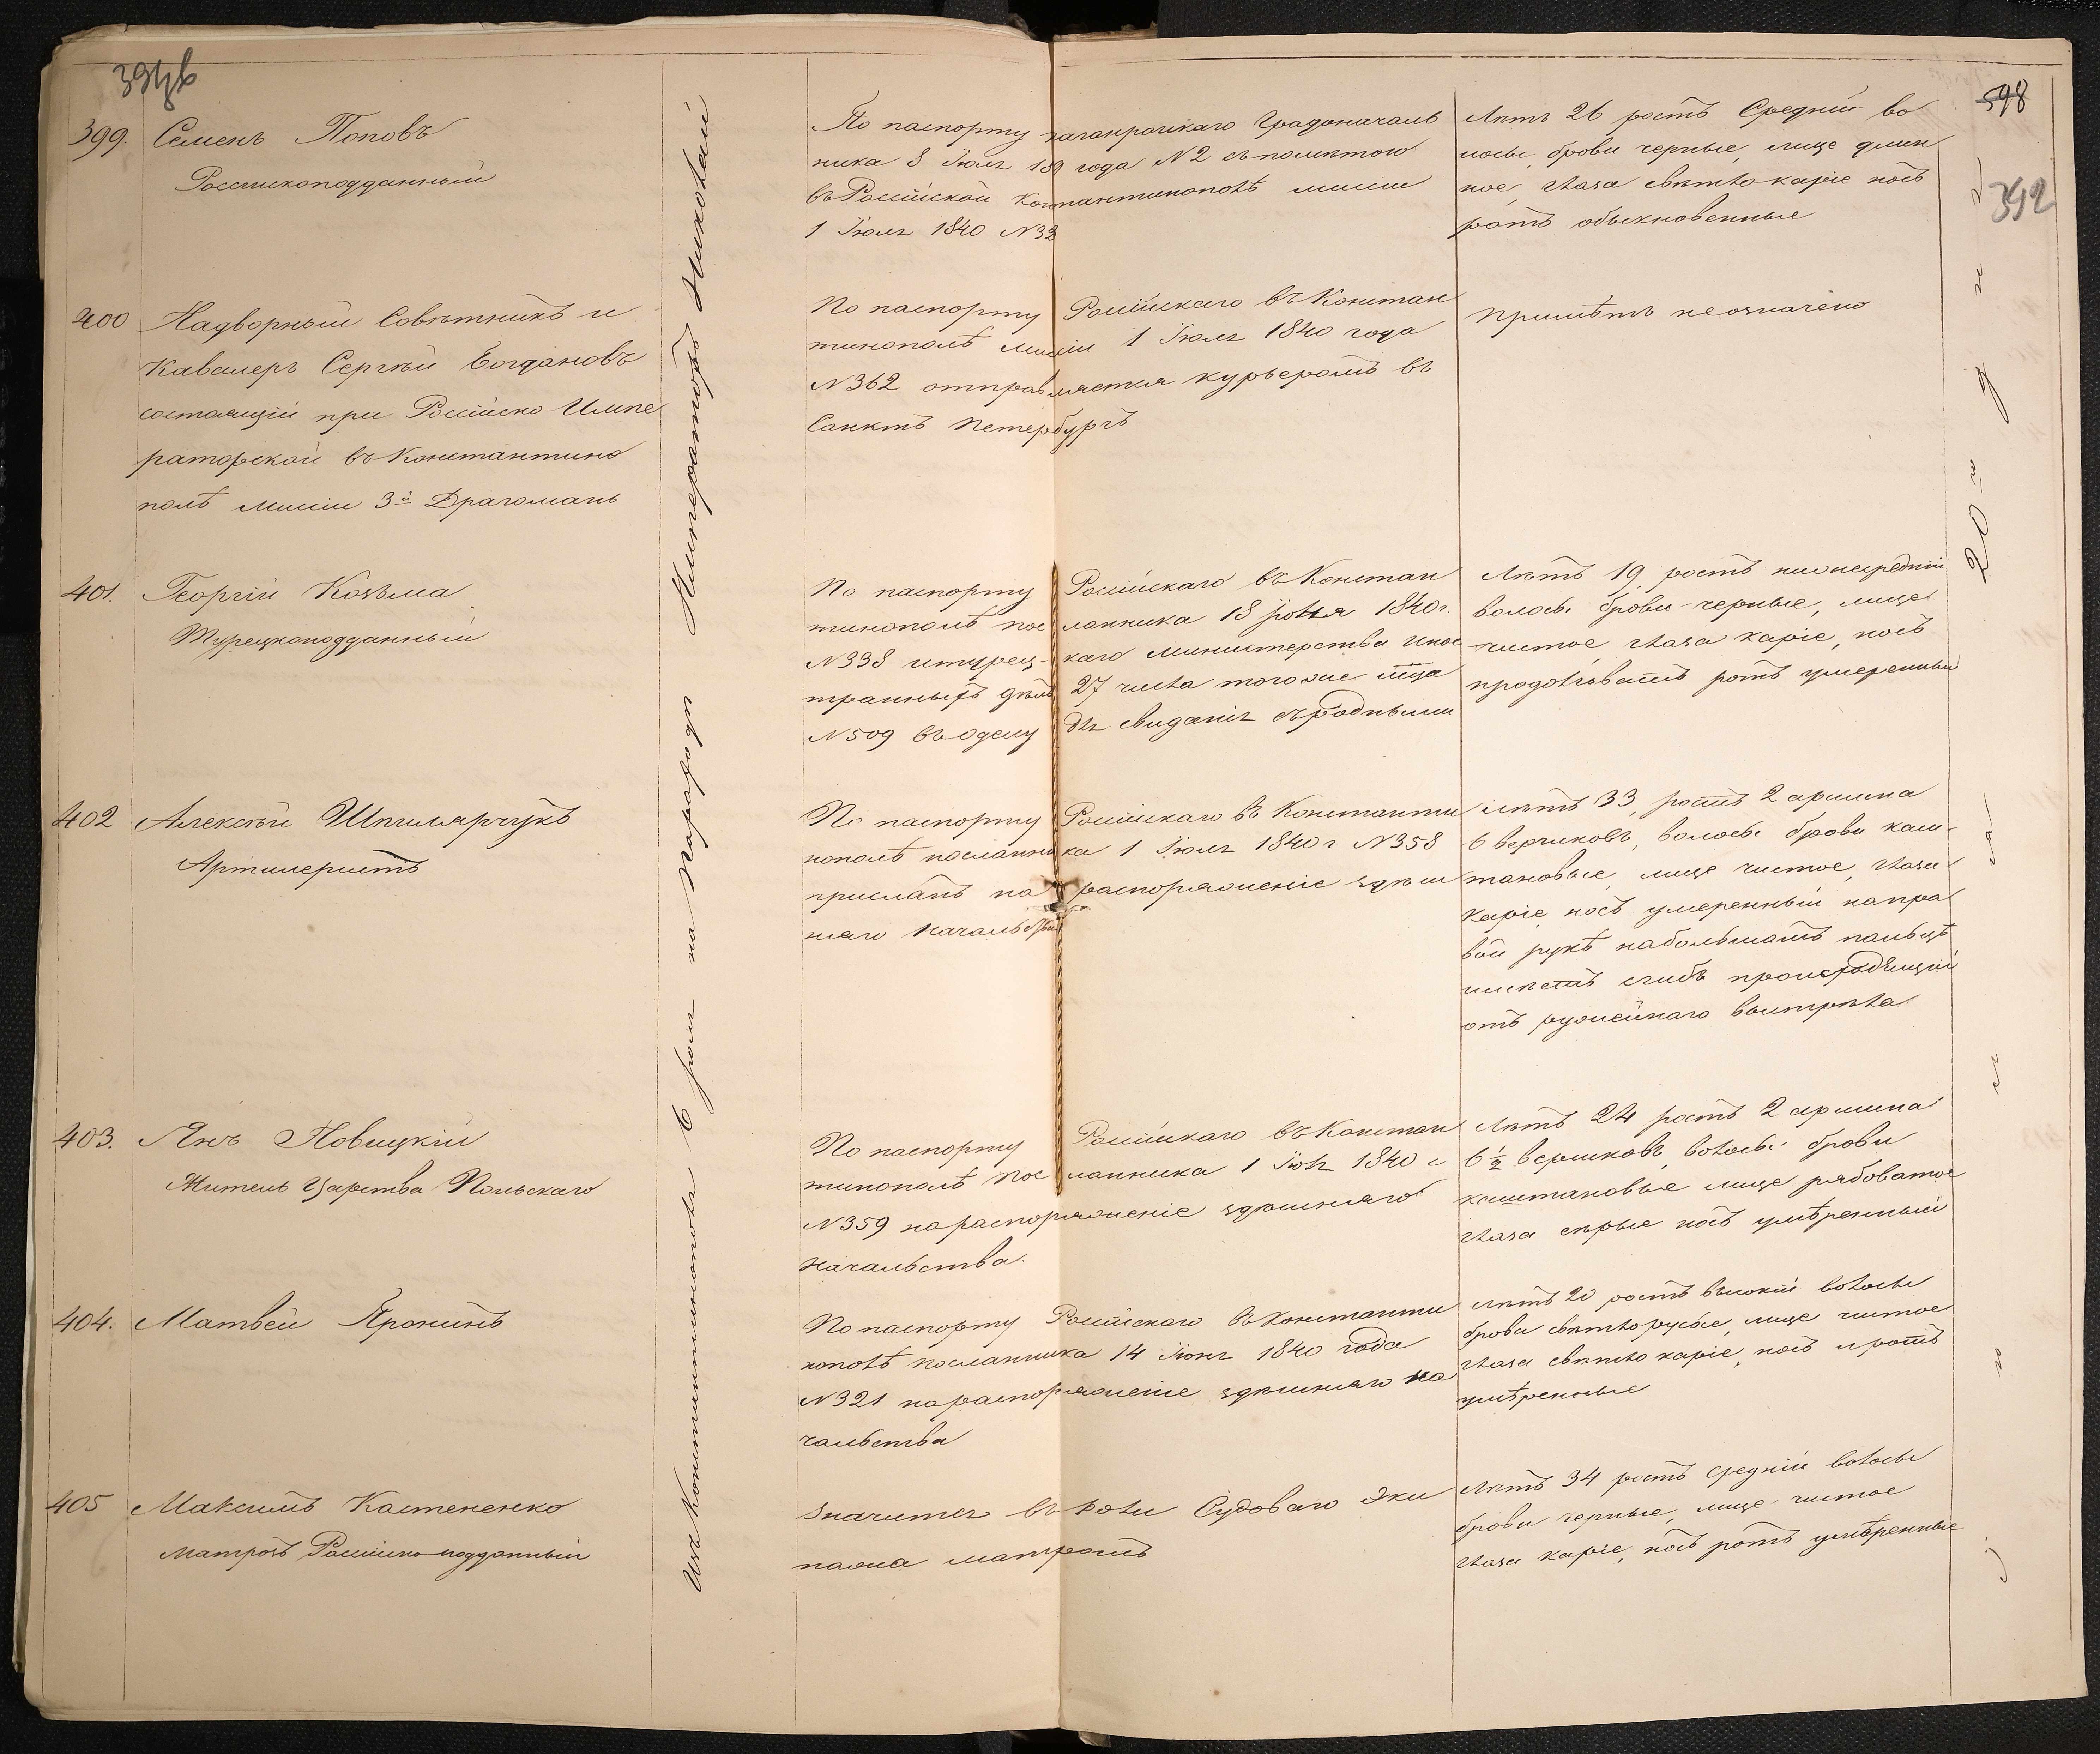 598
392
399. Семенъ Поповъ
Россископодданный
По паспорту таганрогскаго Градоначаль
ника 8 Іюля 189 года №2 съ
въ Россійской Константинополѣ миссіи
1 Іюля 1840 №
Лѣтъ 26 ростъ Средній во
лосы, брови черные, лице длин
ное, глаза свѣтло-карie носъ
ротъ обыкновенные
400 Надворный Совѣтникъ и
Кавалеръ Сергѣй Богдановъ
состоящій при Россійско Импе
раторской въ Константино
полѣ миссіи 3й Драгоманъ
По паспорту Россійскаго въ Констан
тинополѣ миссіи 1 Іюля 1840 года
№362 отправляется курьеромъ въ
Санктъ Петербургъ
Примѣтъ неозначено
401. Георгій Козьма
Турецкоподданный
По паспорту Россійскаго въ Констан
тинополѣ посланника 18 Іюня 1840г.
№338 итурец-каго министерства инос
транныхъ дѣлъ 27 числа тогоже мѣца
№509 въ Одесу для свиданія съ родными
Лѣтъ 19, ростъ
волосы брови черные, лице
чистое, глаза карie, носъ
продолговатъ ротъ умеренный
402 Алексѣй
Артилеристъ
По паспорту Россійскаго въ Константи
нополѣ посланника 1 Іюля 1840г №358
присланъ на распоряженіе здѣш
няго начальства
лѣтъ 33, ростъ 2 аршина
6 вершковъ, волосы брови каш-
тановые, лице чистое, глаза
карie, носъ умеренный напра
вой рукѣ набольшомъ пальцѣ
имѣетъ происходящій
отъ ружейнаго выстрѣла
403. Янъ Новицкій
Житель Царства Польскаго
По паспорту Россійскаго въ Констан
тинополѣ посланника 1 Іюля 1840 г
№359 нараспоряженіе здѣшняго
начальства.
Лѣтъ 24 ростъ 2 аршина
6 ½ вершковъ, волосы брови
каштановые лице рябоватое
глаза сѣрые носъ умѣренный
404. Матвей Пронинъ
По паспорту Россійскаго въ Константи
нополѣ посланника 14 Іюня 1840 года
№321 нараспоряженіе здѣшняго на
чальства
лѣтъ 20 ростъ высокій волосы
брови свѣтлорусые, лице чистое
глаза свѣтло карie, носъ и ротъ
умѣренные
405 Максимъ Кастененко
матрозъ Россійско-подданный
Значится въ роли Судоваго Эки
пажа матрозъ
Лѣтъ 34 ростъ средній волосы
брови черные, лице чистое
глаза карie, носъ ротъ умѣренные
Изъ Константинополя 6 Іюля на Пароходѣ Императоръ Николай